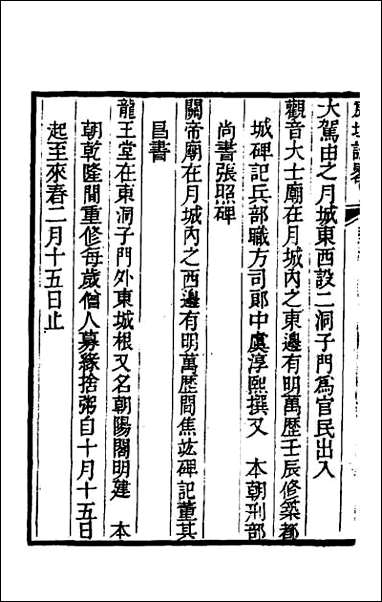 大駕由之月城東西設二洞子門爲官民出入
觀音大士廟在月城內之東邊有明萬歷壬辰修築都
城碑記兵部職方司郎中虞淳熙撰又　本朝刑部
尚書張照碑
關帝廟在月城內之西邊有明萬歷間焦竑碑記董其
昌書
龍王堂在東洞子門外東城根又名朝陽閣明建　本
朝乾隆間重修每歲僧人募緣捨粥自十月十五日
起至來春二月十五日止